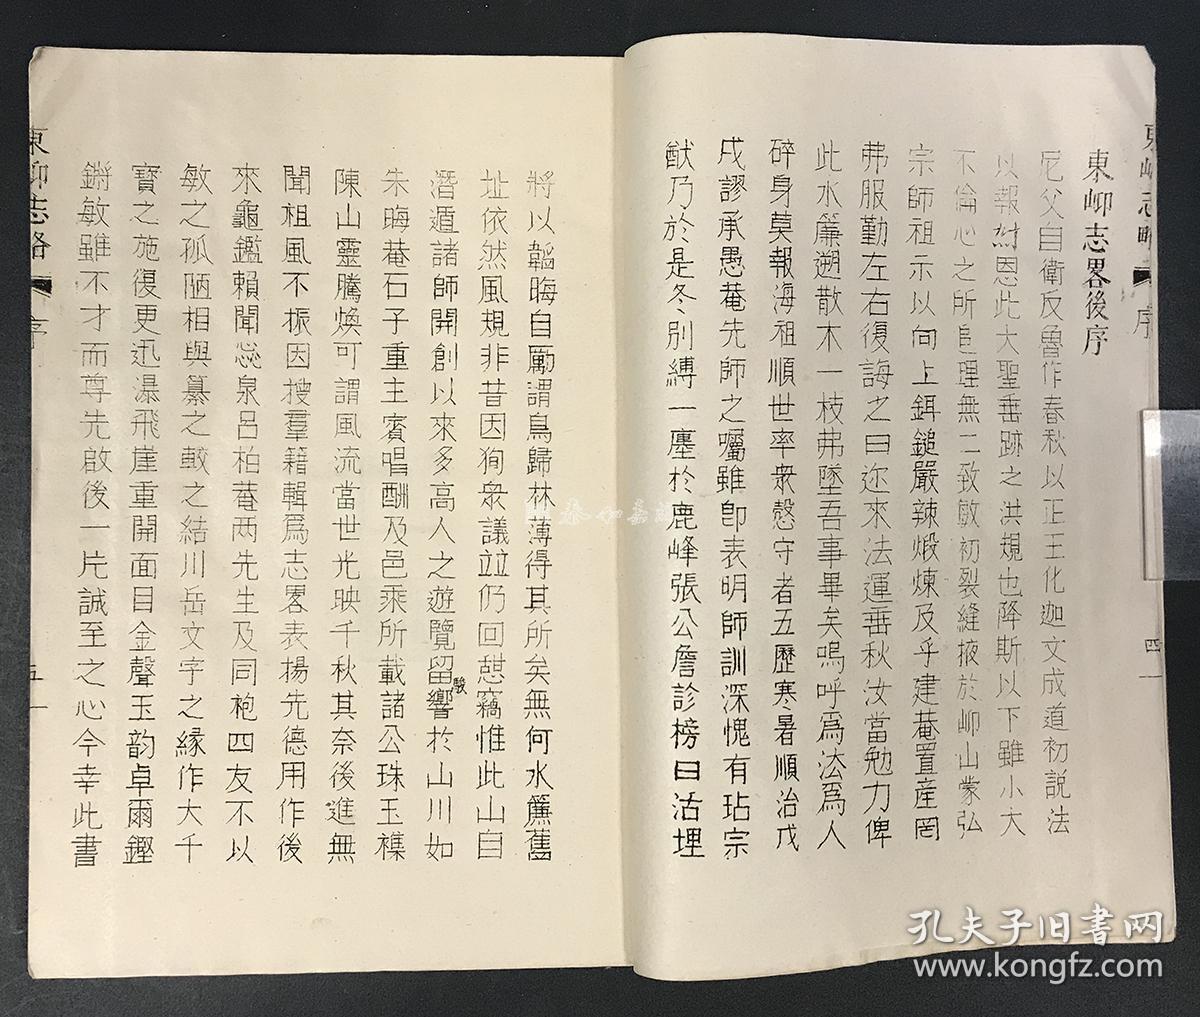 東峁志畧後序
尼父自衛反魯作春秋以正王化迦文成道初説法
以報恩此大聖垂跡之洪規也降斯以下雖小大
不倫心之所理無二致敏初裂縫掖於峁山蒙弘
宗師祖示以向上鉗鎚嚴辣煅煉及乎建菴置産罔
弗服勤左右復誨之曰迩來法運垂秋汝當勉力俾
此水簾遡散木一枝弗墜吾事畢矣嗚呼爲法爲人
碎身莫報海祖順世率衆愨守者五歷寒暑順治戊
戌謬承愚菴先師之囑雖卽表明師訓深愧有玷宗
猷乃於是冬别縛一廛於鹿峰張公詹診榜曰活埋
將以韜晦自勵謂鳥歸林薄得其所矣無何水簾舊
址依然風規非昔因狥衆議竝仍回憇竊惟此山自
潛遁諸師開創以來多高人之遊覽留響於山川如
駿
朱晦菴石子重主賓唱酬及邑乘所載諸公珠玉襍
陳山靈騰煥可謂風流當世光映千秋其奈後進無
聞祖風不振因搜羣籍輯爲志畧表揚先德用作後
來龜鑑賴聞惢泉呂柏菴两先生及同袍四友不以
敏之孤陋相與纂之較之結川岳文字之緣作大千
寶之施復更迅瀑飛崖重開面目金聲玉韵卓爾鏗
鏘敏雖不才而尊先啟後一片誠至之心今幸此書
東峁志略
序
五
東峁志略
序
四
孔夫子旧书网
www.kongfz.com